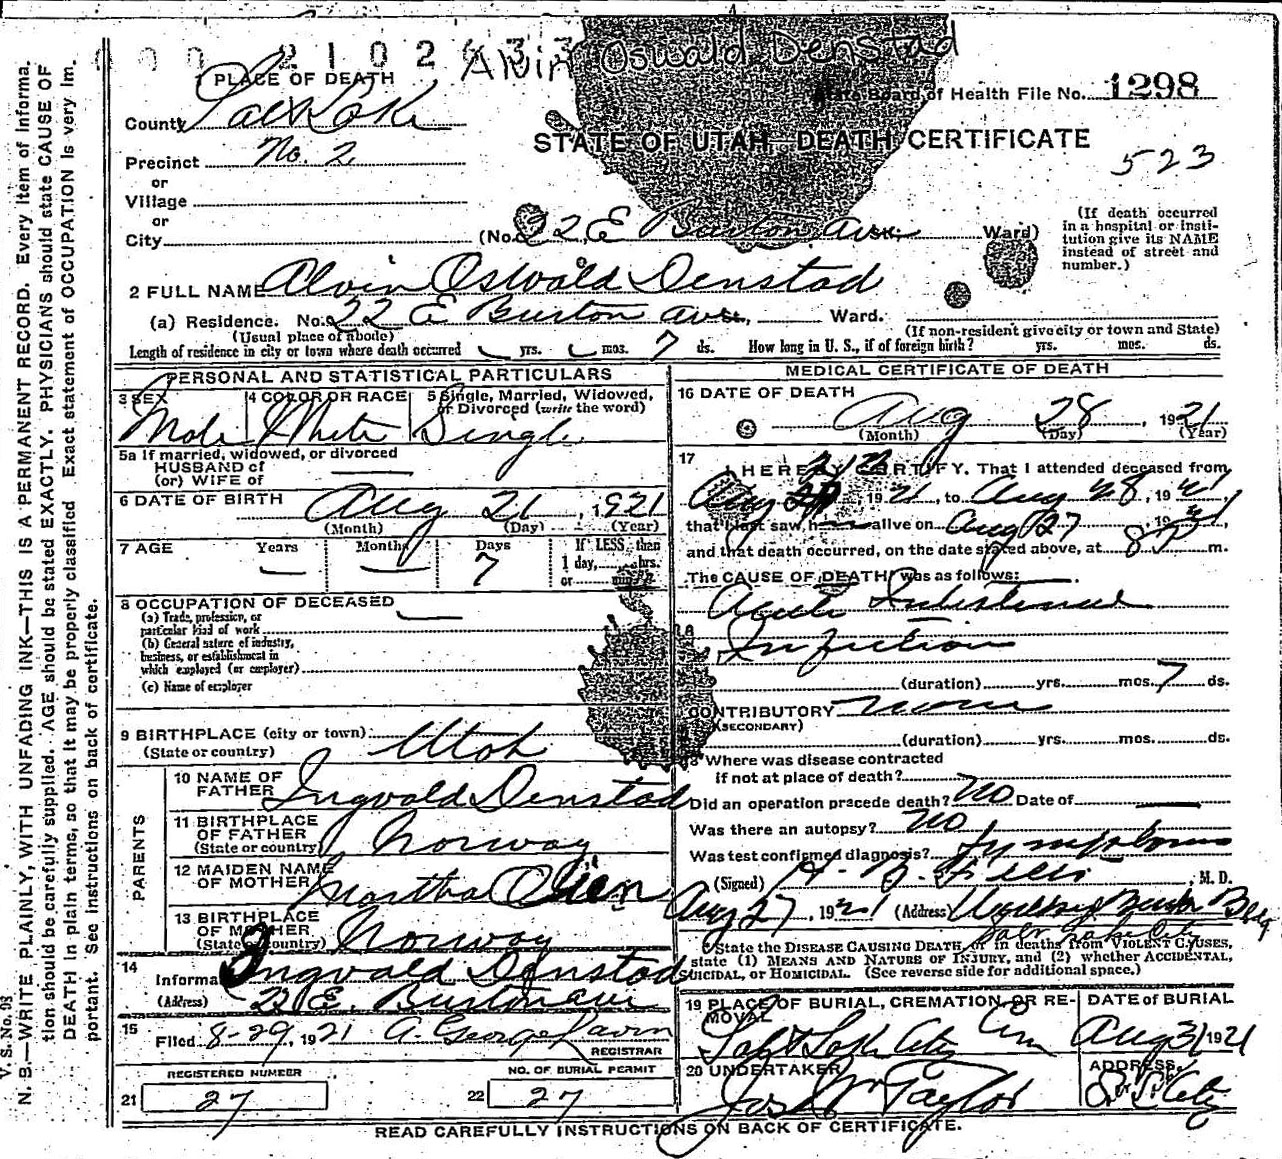 2102
Alvin Oswald Denstad
1 PLACE OF DEATH
State Board of Health File No. 1298
County Salt Lake
STATE OF UTAH DEATH CERTIFICATE
523
Precinct No. 2
or
Village
or
City (No. 22 E Burton Ave St. Ward)
(If death occurred in a hospital or insti-
tution give its NAME
instead of street and
number.)
2 FULL NAME Alvin Oswald Denstad
(a) Residence. No. 22 E Burton Ave St., Ward.
(Usual place of abode) (If non-resident give city or town and State)
Length of residence in city or town where death occurred yrs. mos. 7 ds. How long in U. S., if of foreign birth? yrs. mos. ds.
PERSONAL AND STATISTICAL PARTICULARS
3 SEX
Male
4 COLOR OR RACE
White
5 Single, Married, Widowed,
or Divorced (write the word)
Single
5a If married, widowed, or divorced
HUSBAND of
(or) WIFE of
6 DATE OF BIRTH Aug 21, 1921
(Month) (Day) (Year)
7 AGE Years Months Days If LESS than
7 1 day, hrs.
or min.
8 OCCUPATION OF DECEASED
(a) Trade, profession, or
particular kind of work
(b) General nature of industry,
business, or establishment in
which employed (or employer)
(c) Name of employer
9 BIRTHPLACE (city or town) Utah
(State or country)
PARENTS
10 NAME OF
FATHER Ingvald Denstad
11 BIRTHPLACE
OF FATHER Norway
(State or country)
12 MAIDEN NAME
OF MOTHER Martha Olsen
13 BIRTHPLACE
OF MOTHER Norway
(State or country)
14
Informant Ingvald Denstad
(Address) 22 E. Burton ave
15
Filed 8-29, 1921 A. George Lavin
REGISTRAR
REGISTERED NUMBER
21 27
NO. OF BURIAL PERMIT
22 27
MEDICAL CERTIFICATE OF DEATH
16 DATE OF DEATH
Aug 28, 1921
(Month) (Day) (Year)
17
I HEREBY CERTIFY, That I attended deceased from
Aug 1921, to Aug 28, 1921
that I last saw h alive on Aug 27, 1921,
and that death occurred, on the date stated above, at 8 P m.
The CAUSE OF DEATH was as follows:
Acute Intestinal
Infection
(duration) yrs. mos. 7 ds.
CONTRIBUTORY none
(SECONDARY)
(duration) yrs. mos. ds.
18 Where was disease contracted
if not at place of death?
Did an operation precede death? No Date of
Was there an autopsy? No
Was test confirmed diagnosis? Symptoms
(Signed) M. D.
Aug 27, 1921 (Address) Bldg
Salt Lake City
State the DISEASE CAUSING DEATH, or in deaths from VIOLENT CAUSES,
state (1) MEANS AND NATURE OF INJURY, and (2) whether ACCIDENTAL,
SUICIDAL, OR HOMICIDAL. (See reverse side for additional space.)
19 PLACE OF BURIAL, CREMATION, OR RE-
MOVAL
Salt Lake City Cem
DATE OF BURIAL
Aug 31 1921
20 UNDERTAKER
Jos Wm Taylor
ADDRESS.
S L City
READ CAREFULLY INSTRUCTIONS ON BACK OF CERTIFICATE.
V. S. No. 98
N. B.—WRITE PLAINLY, WITH UNFADING INK—THIS IS A PERMANENT RECORD. Every item of Informa-
tion should be carefully supplied. AGE should be stated EXACTLY. PHYSICIANS should state CAUSE OF
DEATH in plain terms, so that it may be properly classified. Exact statement of OCCUPATION is very im-
portant. See instructions on back of certificate.